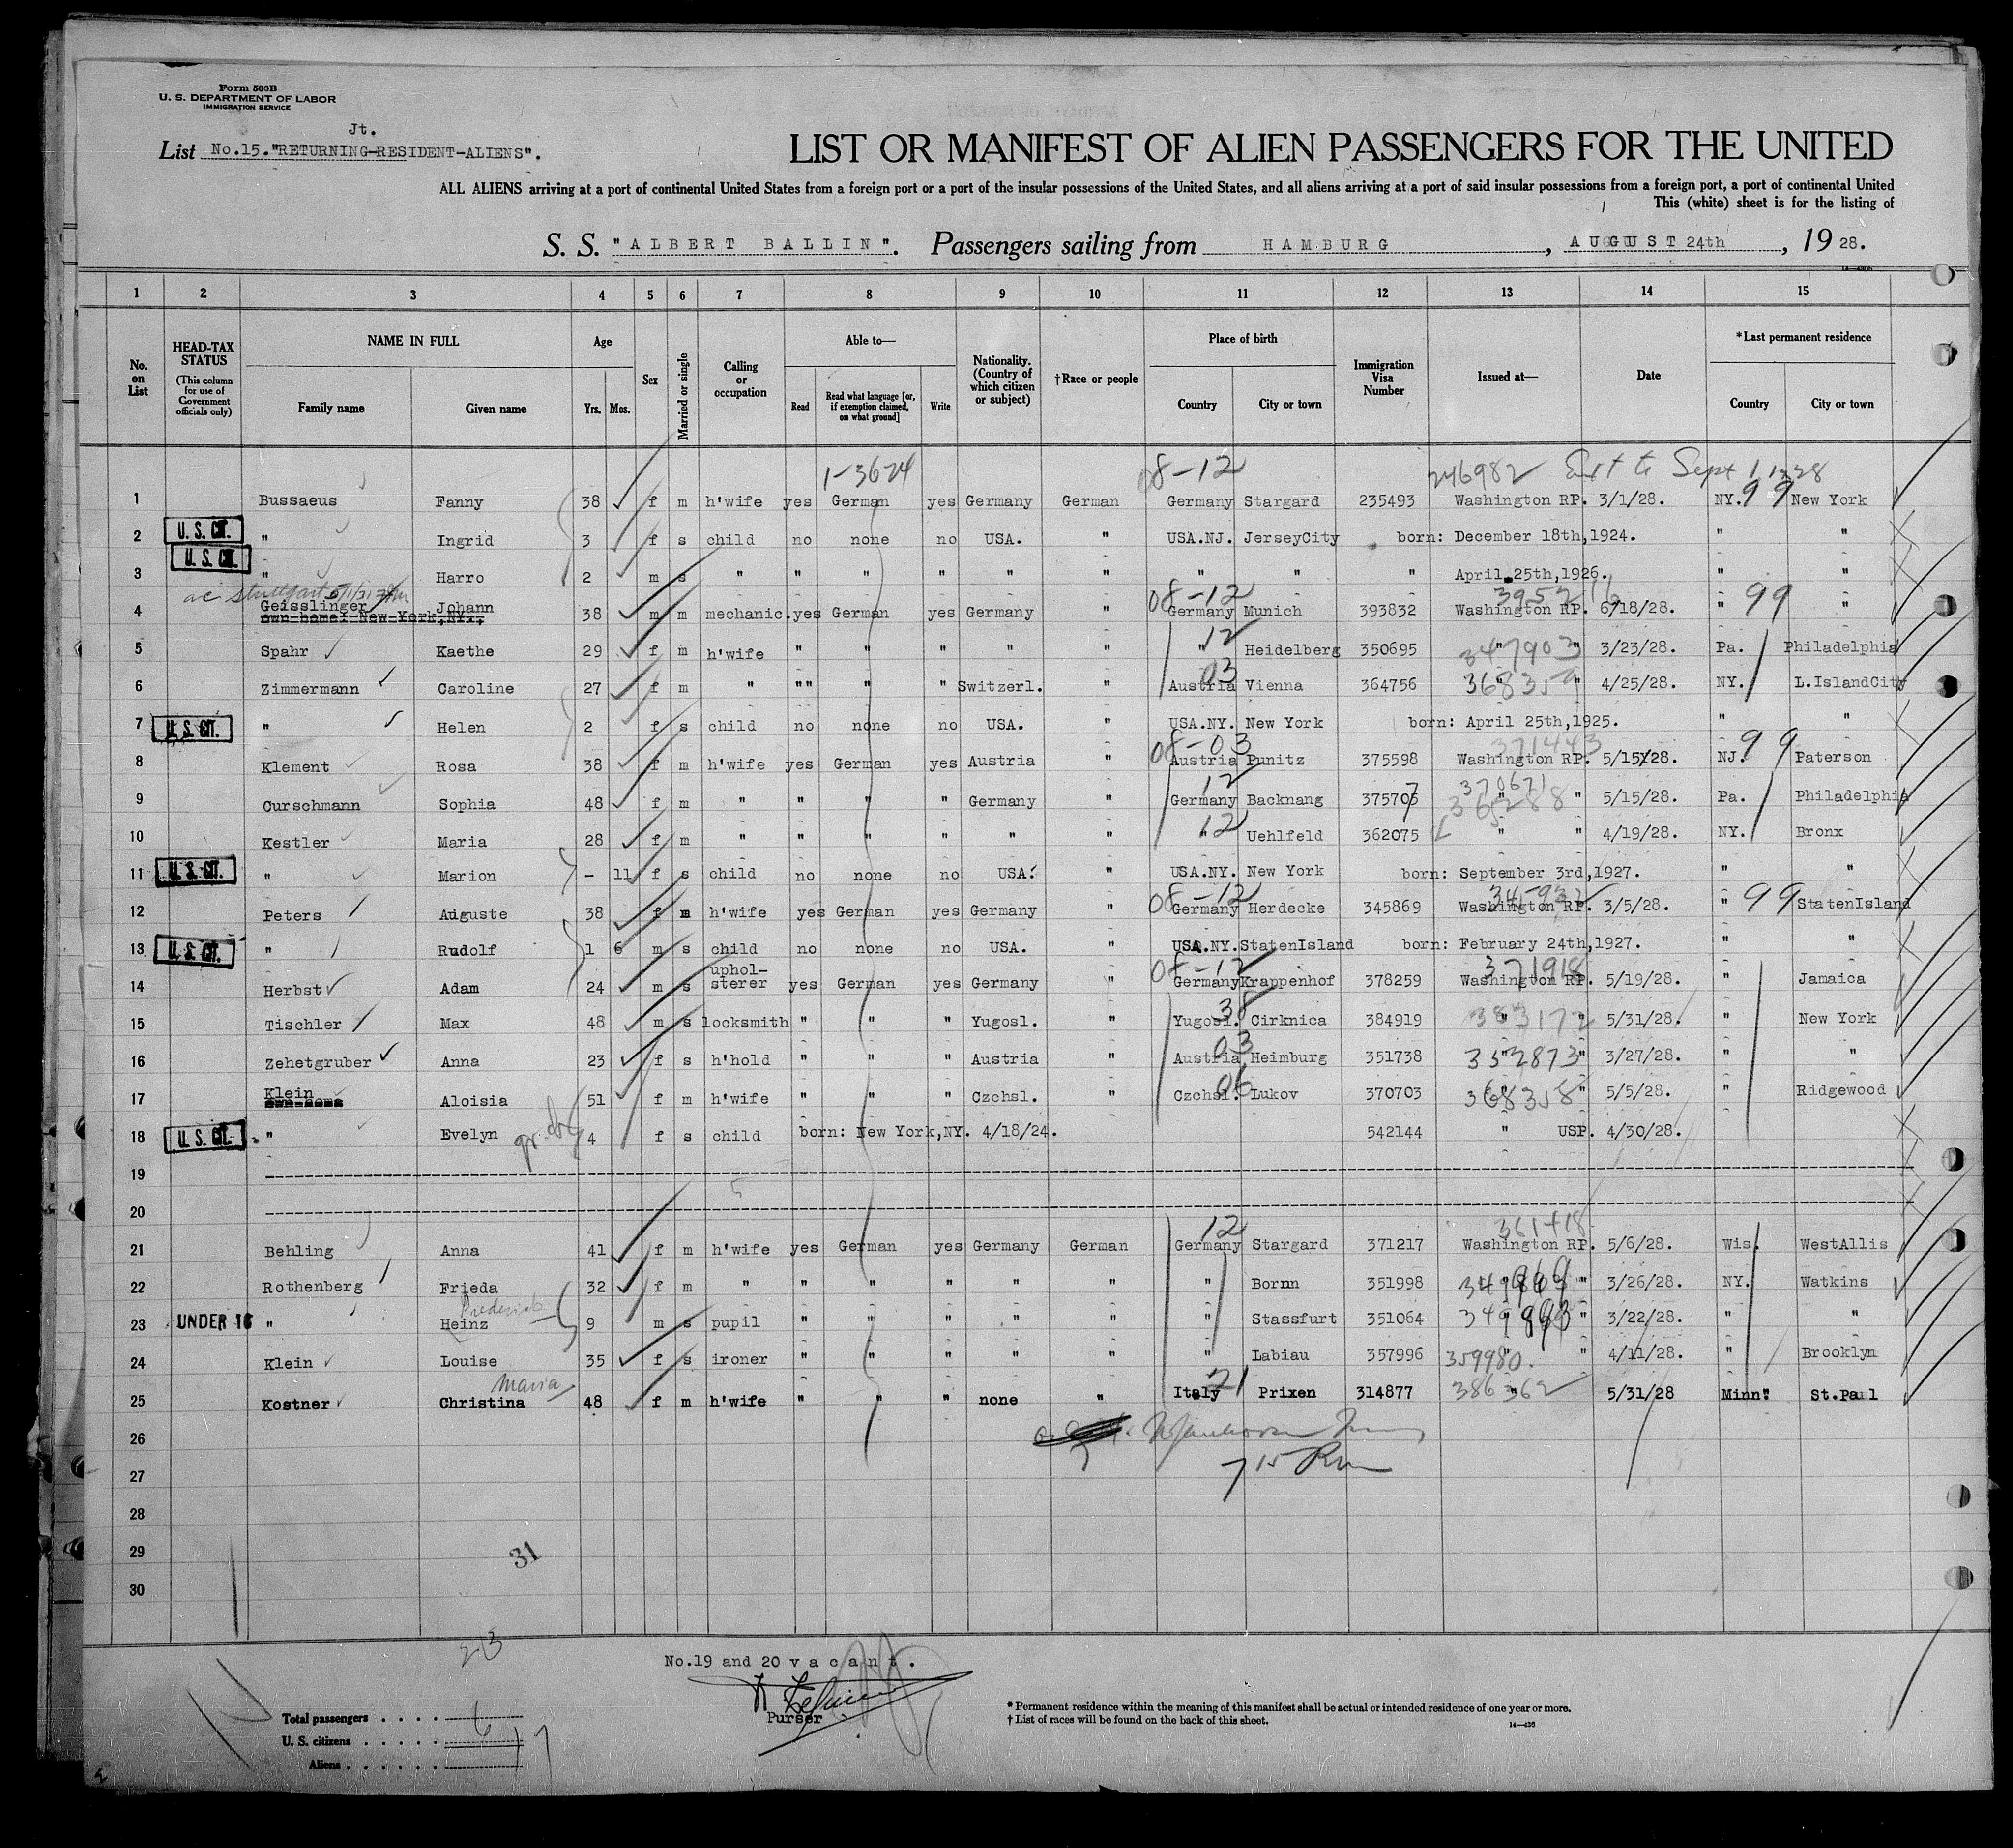 Form 500B
U. S. DEPARTMENT OF LABOR
IMMIGRATION SERVICE
Jt.
List No.15."RETURNING-RESIDENT-ALIENS".
LIST OR MANIFEST OF ALIEN PASSENGERS FOR THE UNITED
ALL ALIENS arriving at a port of continental United States from a foreign port or a port of the insular possessions of the United States, and all aliens arriving at a port of said insular possessions from a foreign port, a port of continental United
This (white) sheet is for the listing of
S. S. "ALBERT BALLIN". Passengers sailing from HAMBURG, AUGUST 24th, 1928.
1 2 3 4 5 6 7 8 9 10 11 12 13 14 15
No. on List
HEAD-TAX STATUS (This column for use of Government officials only)
NAME IN FULL Family name Given name
Age Yrs. Mos.
Sex
Married or single
Calling or occupation
Able to— Read Read what language [or, if exemption claimed, on what ground] Write
Nationality. (Country of which citizen or subject)
†Race or people
Place of birth Country City or town
Immigration Visa Number
Issued at—
Date
*Last permanent residence Country City or town
1-3624 08-12 246982 Ext to Sept 1, 1928
1 Bussaeus Fanny 38 f m h'wife yes German yes Germany German Germany Stargard 235493 Washington RP. 3/1/28. NY. 99 New York
2 U. S. CIT. " Ingrid 3 f s child no none no USA. " USA.NJ. JerseyCity born: December 18th,1924. " "
3 U. S. CIT. " Harro 2 m s " " " " " " " " " April 25th,1926. " "
08-12
4 Geisslinger Johann 38 m m mechanic. yes German yes Germany " Germany Munich 393832 Washington RP. 6/18/28. " 99
own home: New York,NY.,
5 Spahr Kaethe 29 f m h'wife " " " " " " 12 Heidelberg 350695 " 347903 " 3/23/28. Pa. Philadelphia
6 Zimmermann Caroline 27 f m " "" " Switzerl. " Austria 03 Vienna 364756 368359 " 4/25/28. NY. L.IslandCity
7 U. S. CIT. " Helen 2 f s child no none no USA. " USA.NY. New York born: April 25th,1925. " "
08-03 371443
8 Klement Rosa 38 f m h'wife yes German yes Austria " Austria Punitz 375598 Washington RP. 5/15/28. NJ. 99 Paterson
12 370671
9 Curschmann Sophia 48 f m " " " " Germany " Germany Backnang 375705 7 " " 5/15/28. Pa. Philadelphia
10 Kestler Maria 28 f m " " " " " " " 12 Uehlfeld 362075 " " 4/19/28. NY. Bronx
11 U. S. CIT. " Marion - 11 f s child no none no USA. " USA.NY. New York born: September 3rd,1927. " "
08-12
12 Peters Auguste 38 f m h'wife yes German yes Germany " Germany Herdecke 345869 Washington RP. 3/5/28. " 99 StatenIsland
13 U. S. CIT. " Rudolf 1 6 m s child no none no USA. " USA.NY. StatenIsland born: February 24th,1927. " "
08-12 371918
14 Herbst Adam 24 m s uphol-sterer yes German yes Germany " Germany Krappenhof 378259 Washington RP. 5/19/28. " Jamaica
15 Tischler Max 48 m s locksmith " " " Yugosl. " Yugosl. 38 Cirknica 384919 383172 " 5/31/28. " New York
16 Zehetgruber Anna 23 f s h'hold " " " Austria " Austria 03 Heimburg 351738 352873 " 3/27/28. " "
17 Klein Aloisia 51 f m h'wife " " " Czchsl. " Czchsl. 06 Lukov 370703 368358 " 5/5/28. " Ridgewood
18 U. S. CIT. " Evelyn 4 f s child born: New York,NY. 4/18/24. 542144 " USP. 4/30/28.
19
20
12 361418
21 Behling Anna 41 f m h'wife yes German yes Germany German Germany Stargard 371217 Washington RP. 5/6/28. Wis. WestAllis
22 Rothenberg Frieda 32 f m " " " " " " " Bornn 351998 " 3/26/28. NY. Watkins
Frederick
23 UNDER 16 " Heinz 9 m s pupil " " " " " " Stassfurt 351064 " " 3/22/28. " "
24 Klein Louise 35 f s ironer " " " " " " Labiau 357996 359980. " 4/11/28. " Brooklyn
Maria
25 Kostner Christina 48 f m h'wife " " " none " Italy 21 Prixen 314877 386362 " 5/31/28 Minn. St.Paul
26
27
28
29
31
30
23
No.19 and 20 vacant.
Purser
Total passengers
U. S. citizens 6
Aliens 17
* Permanent residence within the meaning of this manifest shall be actual or intended residence of one year or more.
† List of races will be found on the back of this sheet.
14—430